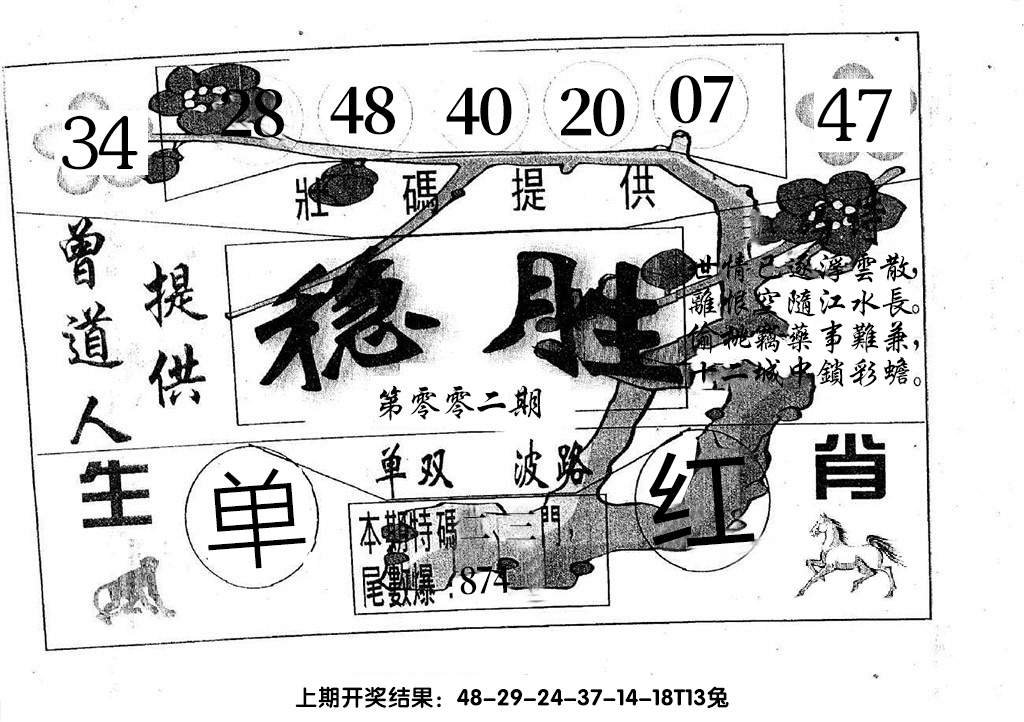 34 28 48 40 20 07 47
壯碼提供
曾道人
提供
稳胜
第零零二期
世情已逐浮雲散，
離恨空隨江水長。
偷桃竊藥事難兼，
十二城中鎖彩蟾。
单双 波路
生肖
单
红
本期特碼二、三門，
尾數爆：874
上期开奖结果：48-29-24-37-14-18T13兔